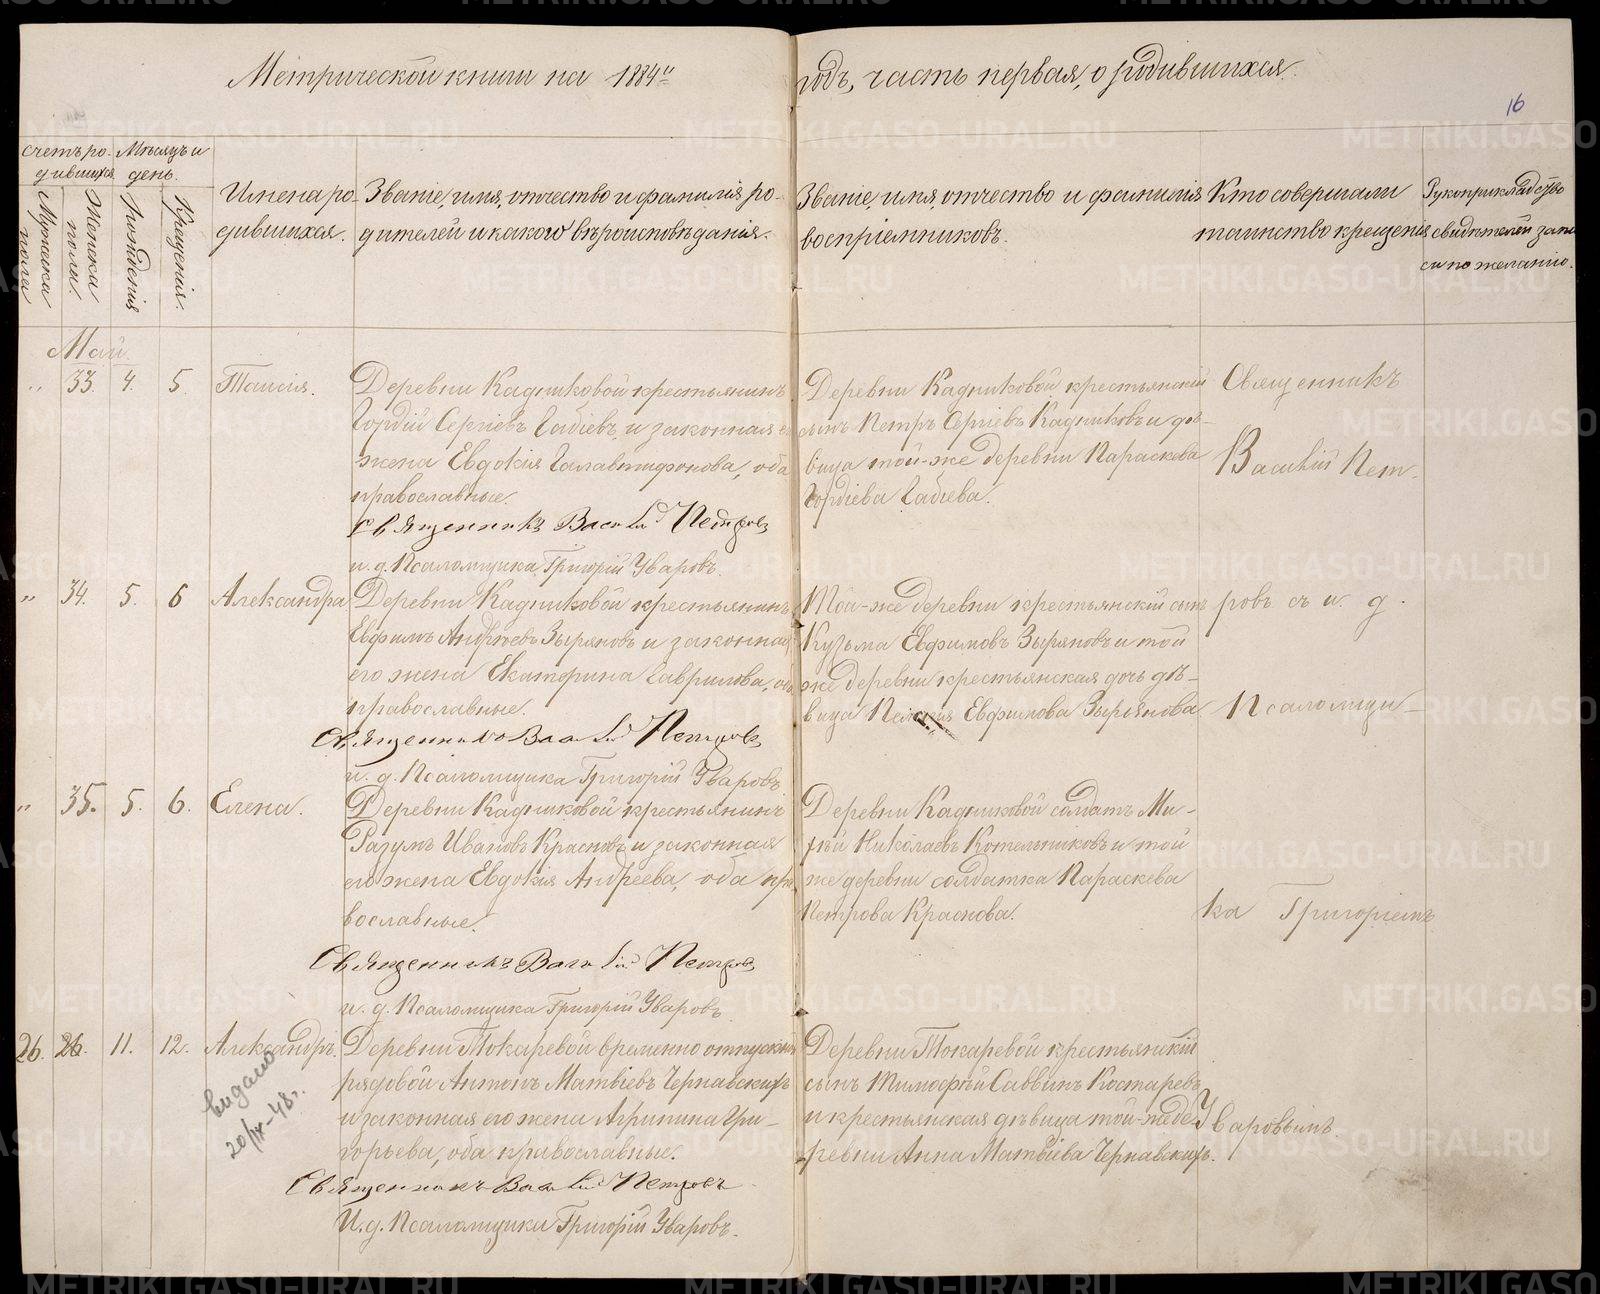 Метрической книги на 1884й годъ, часть первая, о родившихся.
16
счетъ ро-
дившихся
Мужеска пола
Женска пола
Мѣсяцъ и
день.
Рожденія
Крещенія.
Имена ро-
дившихся.
Званіе, имя, отчество и фамилія ро-
дителей и какого вѣроисповѣданія.
Званіе, имя, отчество и фамилія
воспріемниковъ.
Кто совершали
таинство крещенія
Рукоприкладство
свидѣтелей запи
си по желанію.
Май.
„ 33. 4. 5. Таисія.
Деревни Кадниковой крестьянинъ
Гордій Сергіевъ Габіевъ и законная е
жена Евдокія Галавтифонова, оба
православные.
Священникъ Василій Петровъ
и. д. Псаломщика Григорій Уваровъ.
Деревни Кадниковой крестьянскій
сынъ Петръ Сергіевъ Кадниковъ и дѣ-
вица той-же деревни Параскева
Гордіева Габіева.
Священникъ
Василій Пет
„ 34. 5. 6 Александра
Деревни Кадниковой крестьянинъ
Евфимъ Андреевъ Зыряновъ и законная
его жена Екатерина Гаврилова, об
православные.
Священникъ Василій Петровъ
и. д. Псаломщика Григорій Уваровъ
Той-же деревни крестьянскій сынъ
Кузьма Евфимовъ Зыряновъ и той
же деревни крестьянская дочь дѣ-
вица Евфимова Зырянова
ровъ съ и. д.
Псаломщи-
„ 35. 5. 6. Елена.
Деревни Кадниковой крестьянинъ
Разумъ Ивановъ Красновъ и законная
его жена Евдокія Андреева, оба пра
вославные.
Священникъ Василій Петровъ
и. д. Псаломщика Григорій Уваровъ
Деревни Кадниковой солдатъ Ми-
рѣй Николаевъ Котельниковъ и той
же деревни солдатка Параскева
Петрова Краснова.
ка Григоріемъ
26. 26. 11. 12. Александръ.
Деревни Токаревой временно отпускн
рядовой Антонъ Матвіевъ Чернавскихъ
и законная его жена Агрипина Гри-
горьева, оба православные.
Священникъ Василій Петровъ
И. д. Псаломщика Григорій Уваровъ.
Деревни Токаревой крестьянскій
сынъ Тимофей Саввинъ Костаревъ
и крестьянская дѣвица той-же де-
ревни Анна Матвіева Чернавскихъ.
Уваровымъ.
выдано
20/IX-48г.
METRIKI.GASO-URAL.RU